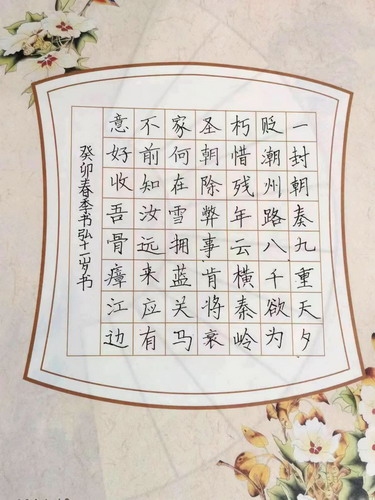 一封朝奏九重天夕
贬潮州路八千欲为
朽惜残年云横秦岭
圣朝除弊事肯将衰
家何在雪拥蓝关马
不前知汝远来应有
意好收吾骨瘴江边
癸卯春季书弘十一岁书